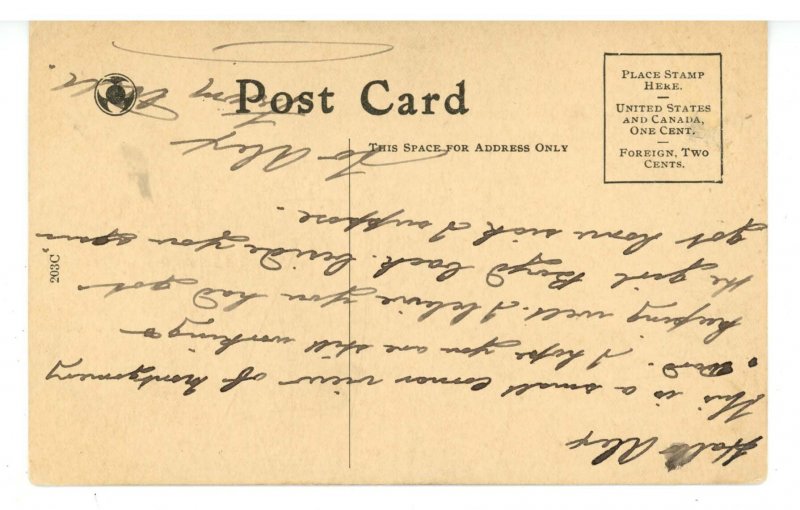 Post Card
THIS SPACE FOR ADDRESS ONLY
PLACE STAMP
HERE.
UNITED STATES
AND CANADA,
ONE CENT.
FOREIGN, TWO
CENTS.
203C
Hallo Alex
This is a small corner view of Montgomery
I hope you are still working &
keeping well. I believe you had got
the girl Boyd back beside you again
got home sick I suppose.
To Alex
from